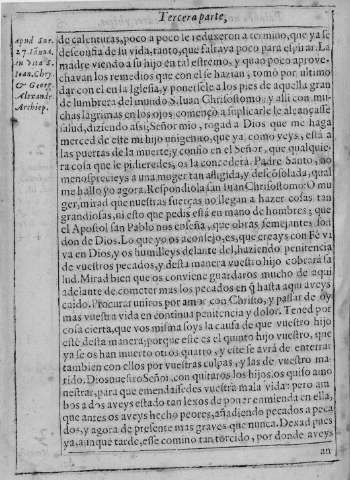 Tercera parte,
apud Sur.
27. Ianua.
in vita S.
Ioan. Chry.
& Georg.
Alexandr.
Archiep.
de calenturas, poco a poco le reduxeron a termino, que ya se
desconfia de su vida, tanto, que faltava poco para espirar. La
madre viendo a su hijo en tal estremo, y quan poco aprove-
chavan los remedios que con el se hazian, tomò por ultimo
dar con el en la Iglesia, y ponersele a los pies de aquella gran
de lumbrera del mundo S. Iuan Chrisostomo: y alli con mu-
chas lagrimas en los ojos començò a suplicarle le alcançasse
salud, diziendo assi; Señor mio, rogad a Dios que me haga
merced de este mi hijo unigenito, que ya, como veys, està a
las puertas de la muerte; y confio en el Señor, que qualquie-
ra cosa que le pidieredes, os la concederà. Padre Santo, no
menosprecieys a una muger tan afligida, y desconsolada, qual
me hallo yo agora. Respondiola san Iuan Chrisostomo: O mu
ger, mirad que nuestras fuerças no llegan a hazer cosas tan
grandiosas, ni esto que pedis està en mano de hombres; que
el Apostol san Pablo nos enseña, que obras semejantes son
don de Dios. Lo que yo os aconsejo, es, que creays con Fè vi
va en Dios, y os humilleys delante del, haziendo penitencia
de vuestros pecados, y desta manera vuestro hijo cobrarà sa
lud. Mirad bien que os conviene guardaros mucho de aqui
adelante de cometer mas los pecados en q̃ hasta aqui aveys
caido. Procurad uniros por amor con Christo, y passar de oy
mas vuestra vida en continua penitencia y dolor. Tened por
cosa cierta, que vos misma soys la causa de que vuestro hijo
estè desta manera; porque este es el quinto hijo vuestro, que
ya se os han muerto otros quatro, y este se avrà de enterrar
tambien con ellos por vuestras culpas, y las de vuestro ma-
rido. Dios nuestro Señor, con quitaros los hijos, os quiso amo
nestrar, para que emendassedes vuestra mala vida: pero am
bos a dos aveys estado tan lexos de poner emienda en ella,
que antes os aveys hecho peores, añadiendo pecados a peca
dos, y agora de presente mas graves que nunca. Dexad pues
ya, aunque tarde, esse camino tan torcido, por donde aveys
an